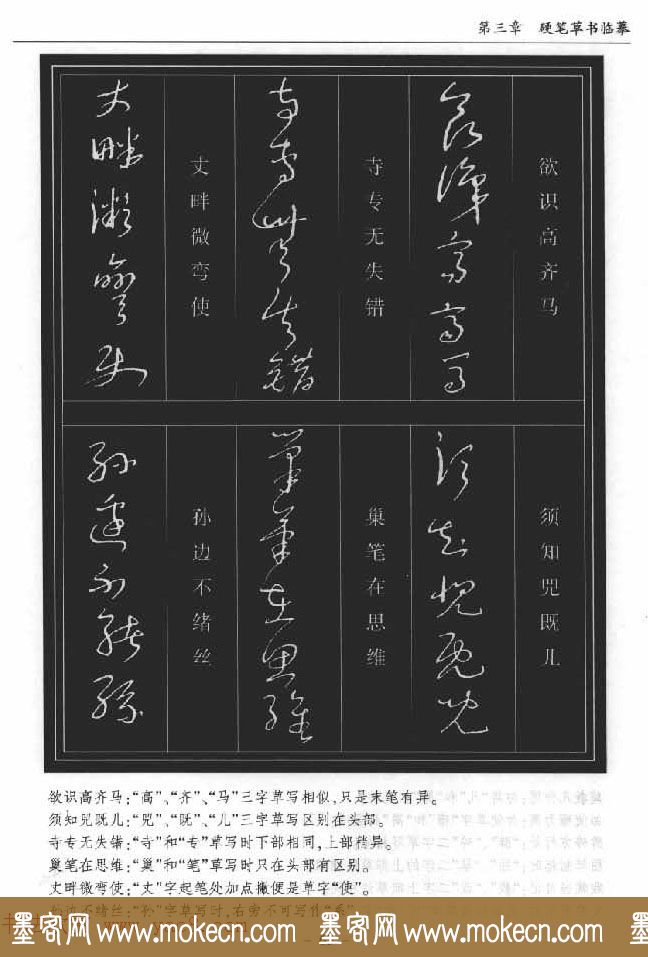 第三章 硬笔草书临摹
欲识高齐马
须知兕既儿
寺专无失错
巢笔在思维
丈畔微弯使
孙边不绪丝
欲识高齐马:“高”、“齐”、“马”三字草写相似,只是末笔有异。
须知兕既儿:“兕”、“既”、“儿”三字草写区别在头部。
寺专无失错:“寺”和“专”草写时下部相同,上部稍异。
巢笔在思维:“巢”和“笔”草写时只在头部有区别。
丈畔微弯使:“丈”字起笔处加点撇便是草字“使”。
孙边不绪丝:“孙”字草写时,右旁不可写作
墨客网 www.mokecn.com 墨客网 www.mokecn.com